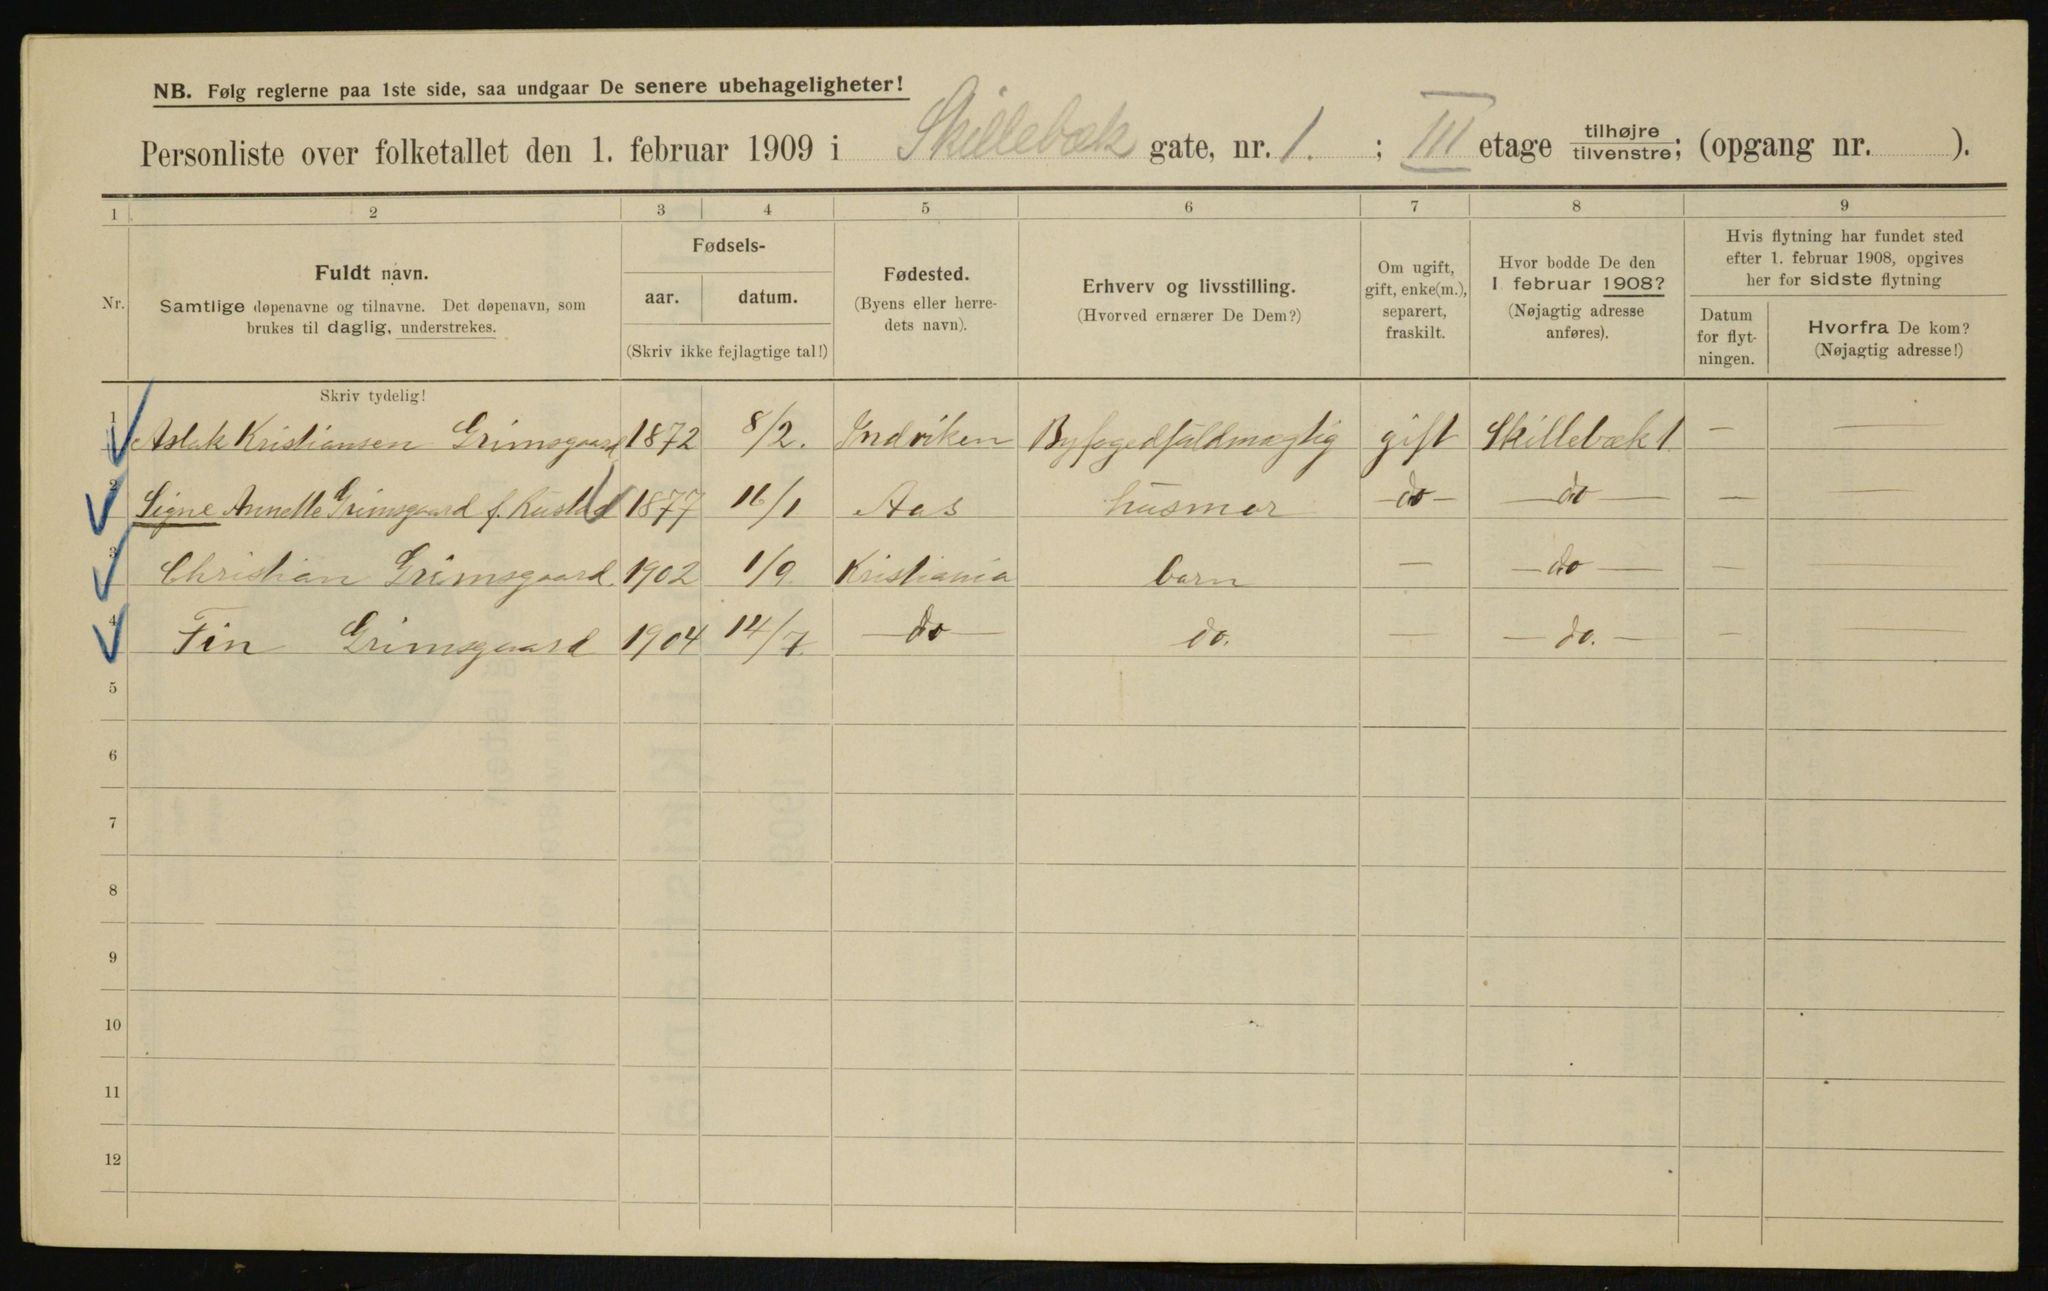 NB. Følg reglerne paa 1ste side, saa undgaar De senere ubehageligheter!
Personliste over folketallet den 1. februar 1909 i Skillebæk gate, nr. 1. ; III etage tilhøjre tilvenstre; (opgang nr. ).
1 2 3 4 5 6 7 8 9
Nr.
Fuldt navn.
Samtlige døpenavne og tilnavne. Det døpenavn, som
brukes til daglig, understrekes.
Fødsels-
aar. datum.
(Skriv ikke fejlagtige tal!)
Fødested.
(Byens eller herre-
dets navn).
Erhverv og livsstilling.
(Hvorved ernærer De Dem?)
Om ugift,
gift, enke(m.),
separert,
fraskilt.
Hvor bodde De den
1 februar 1908?
(Nøjagtig adresse
anføres).
Hvis flytning har fundet sted
efter 1. februar 1908, opgives
her for sidste flytning
Datum
for flyt-
ningen.
Hvorfra De kom?
(Nøjagtig adresse!)
Skriv tydelig!
1 Aslak Kristiansen Grimsgaard 1872 8/2. Indviken Byfogedfuldmægtig gift Skillebæk 1. — —
2 Signe Annette Grimsgaard f. Rustad 1877 16/1 Aas husmor — do — — do — — —
3 Christian Grimsgaard. 1902 1/9. Kristiania barn — — do — —
4 Fin Grimsgaard 1904 14/7. — do — do. — — do. — — —
5
6
7
8
9
10
11
12